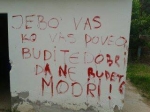 JEBO VAS
KO VAS DOVEO
BUDITE DOBRI
DA NE BUDETE
MODRI!